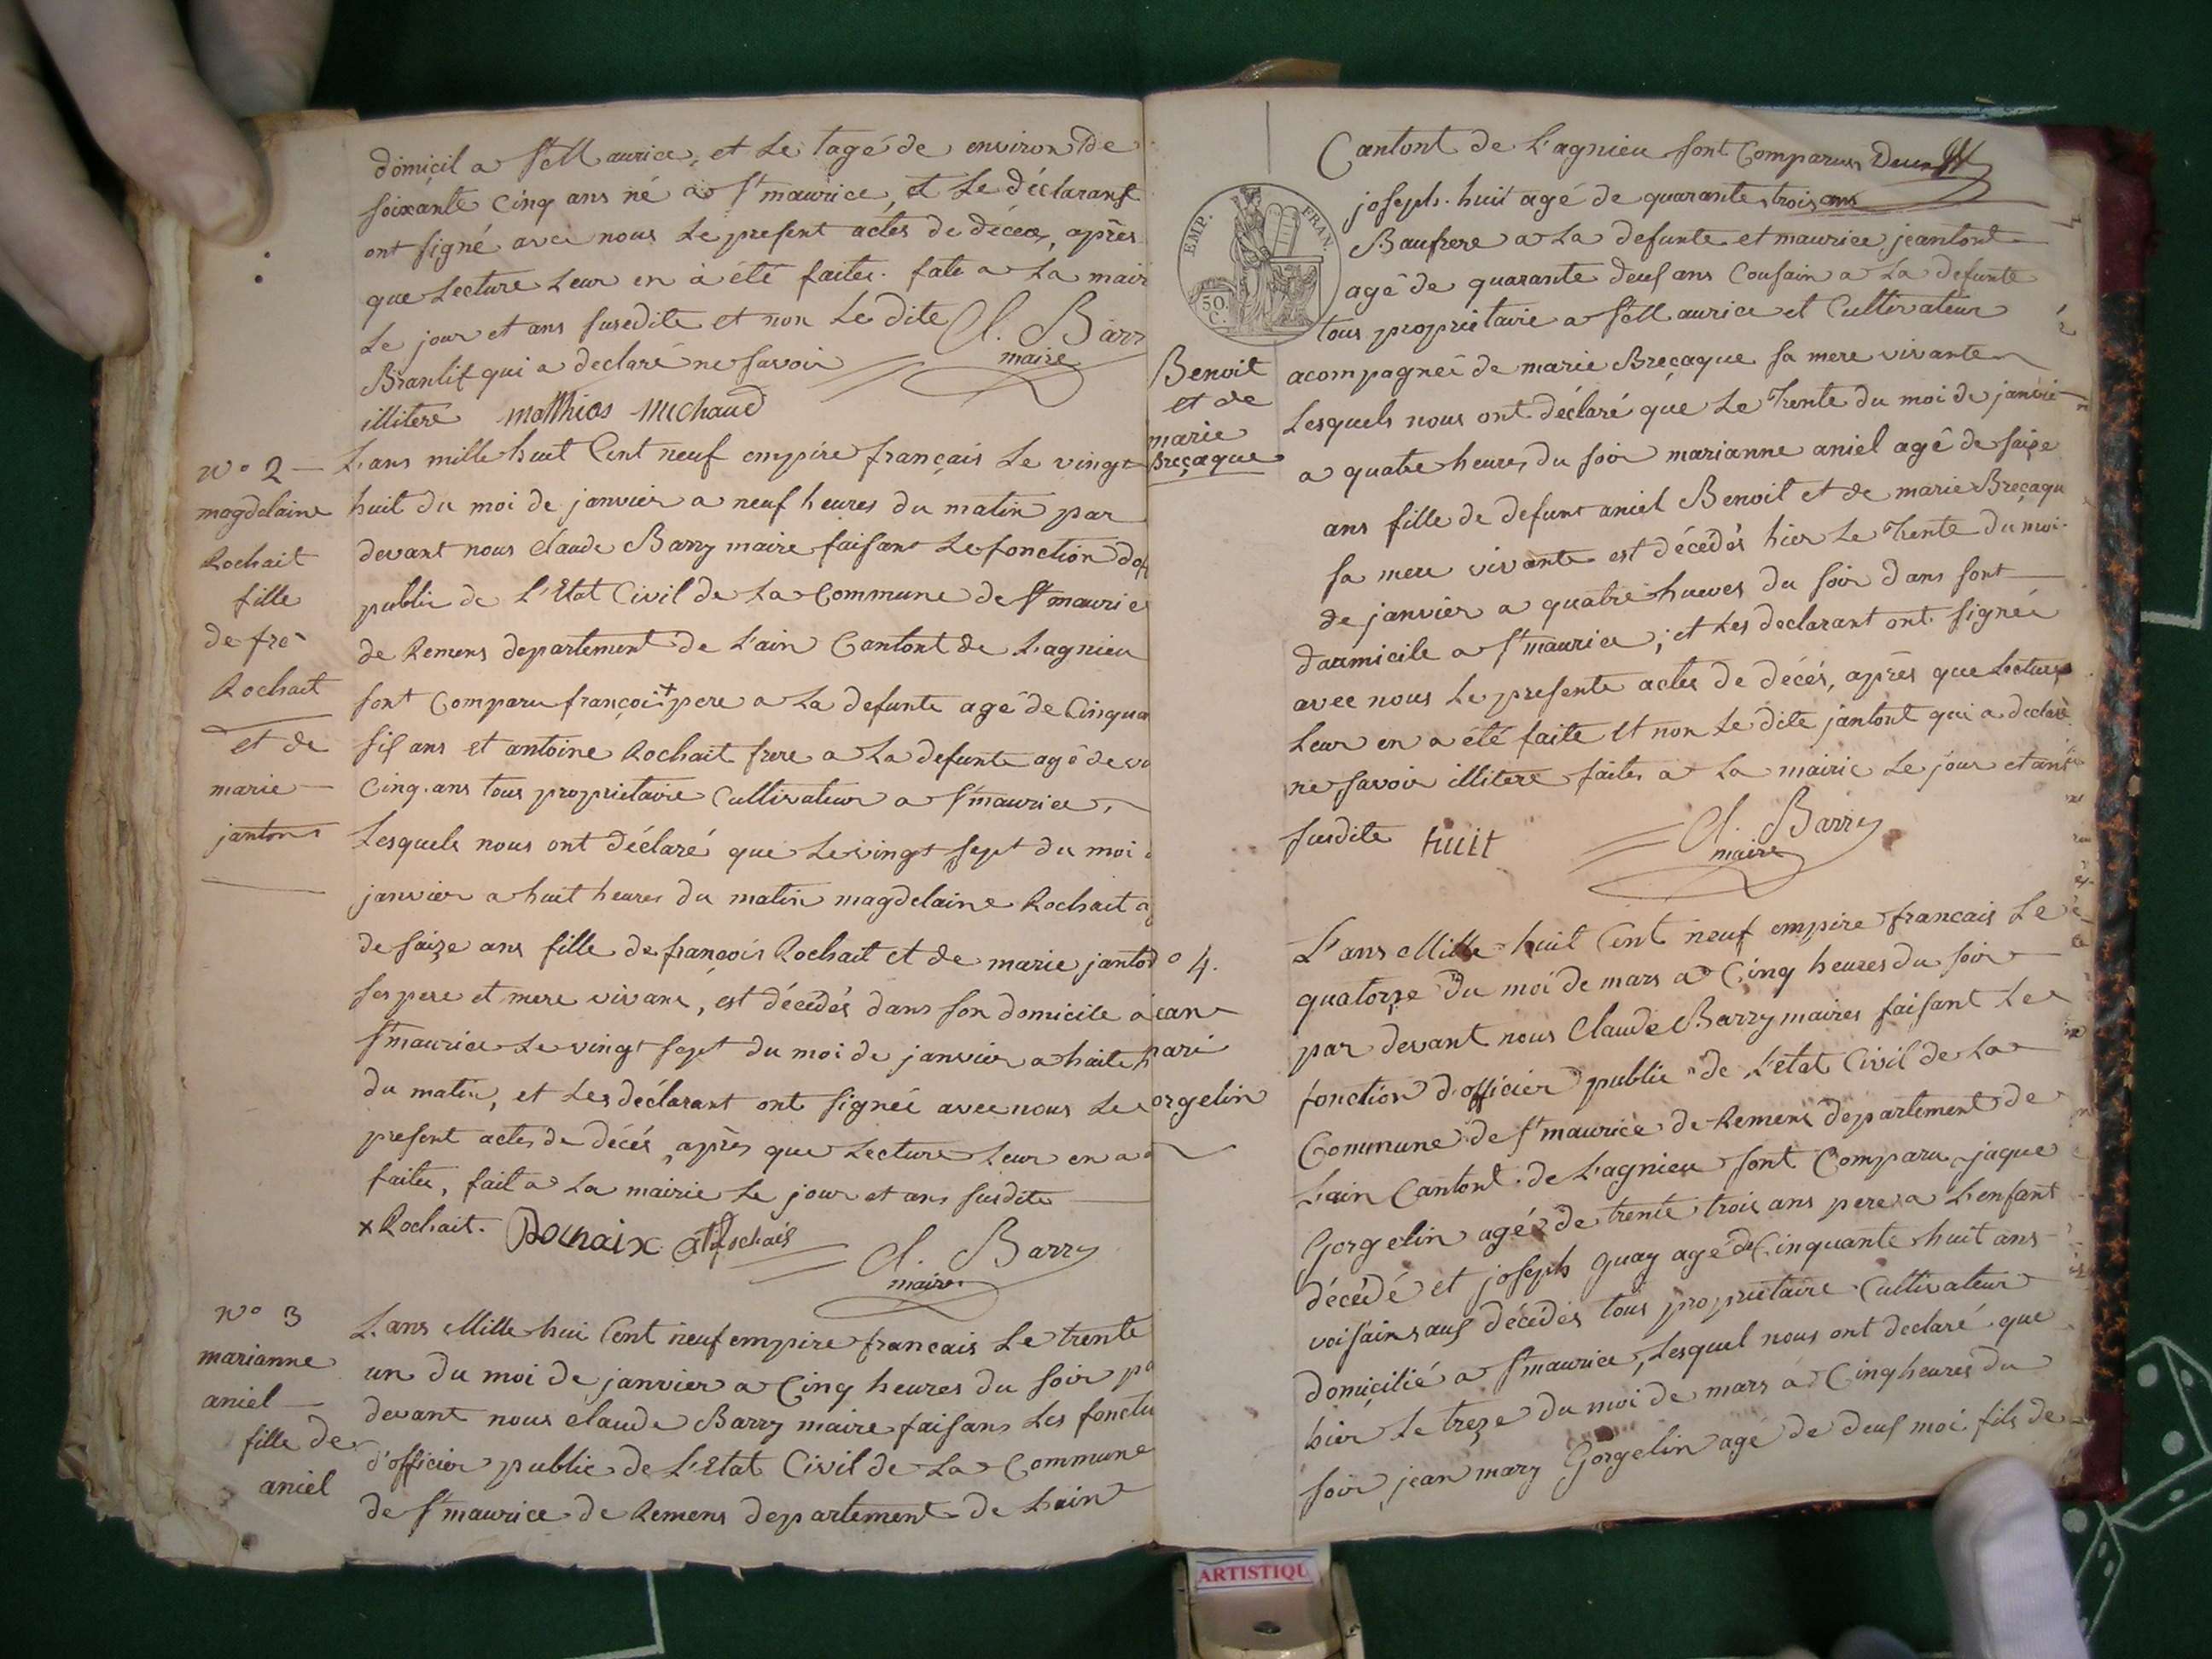 domicil a St Maurice, et Le tagé de environ de
soixante Cinq ans né a St maurice, et Le déclarant
ont signé avec nous Le present actes de déces, après
que Lecture Leur en à été faites. fate a La mair
Le jour et ans susedite et non Le dite Cl. Barr
maire
Brantif qui a declaré ne savoir
illiteré Matthias Michaud
N° 2
magdelaine
Rochait
fille
de fré
Rochait
et de
marie
jantont
L'ans mille huit Cent neuf empire français Le vingt
huit du moi de janvier a neuf heures du matin par
devant nous Claude Barry maire faisant Le fonction dof
public de L'Etat Civil de La Commune de St maurice
de Remens departement de L'ain Cantont de Lagnieu
sont Comparu françoi + pere a La defunte agé de Cinqua
sis ans et antoine Rochait frere a La defunte agé de vi
Cinq ans tous proprietaire Cultivateur a St maurice,
Lesquels nous ont déclaré que Le vingt sept du moi d
janvier a huit heures du matin magdelaine Rochait a
de saize ans fille de françois Rochait et de marie janton
ses pere et mere vivans, est décédés dans son domicile a
St maurice Le vingt sept du moi de janvier a huite h
du matin, et Les déclarant ont signée avec nous Le
present actes de décés, après que Lecture Leur en a é
faites, fait a La mairie Le jour et ans susdite
x Rochait. Rochaix at Rochais Cl. Barry
maire
N° 3
marianne
aniel
fille de
aniel
L'ans Mille hui Cent neuf empire francais Le trente
un du moi de janvier a Cinq heures du soir pa
devant nous Claude Barry maire faisans Les fonctu
d'officier public de L'Etat Civil de La Commune
de St maurice de Remens departement de Lain
EMP. FRAN.
50 C.
Cantont de L'agnieu sont Comparus
joseph huit agé de quarante trois ans
Baufrere a La defunte et maurice jeantont
agé de quarante deus ans Cousain a La defunte
tous proprietaire a St Maurice et Cultivateur
Benoit
et de
marie
Breçaque
acompagnée de marie Breçaque sa mere vivante
Lesquels nous ont déclaré que Le trente du moi de janvié
a quatre heures du soir marianne aniel agé de saize
ans fille de defunt aniel Benoit et de marie Breçaqu
sa mere vivante est décédés hier Le trente du moi
de janvier a quatre hueres du soir dans sont
daumicile a St maurice; et Les declarant ont signée
avec nous Le presente actes de décés, après que Lecture
Leur en a été faite et non Le dite jantont qui a declaré
ne savoir illitere faites a La mairie Le jour et ans
susdite huit Cl. Barry
maire
° 4.
jean
mari
orgelin
L'ans Mille huit Cent neuf empire francais Le
quatorze du moi de mars a Cinq heures du soir
par devant nous Claude Barry maires faisant Le
fonction d'officier public de L'etat Civil de La
Commune de St maurice de Remens departement de
Lain Cantont de L'agnieu sont Comparu jaque
Gorgelin agé de trente trois ans pere a L'enfant
décédé et joseph guay agé de Cinquante huit ans
voisains aus décédés tous proprietaire Cultivateur
domicilié a St maurice, Lesquel nous ont declaré que
hier Le treze du moi de mars a Cinq heures du
soir jean mary Gorgelin agé de deus moi fils de
ARTISTIQU